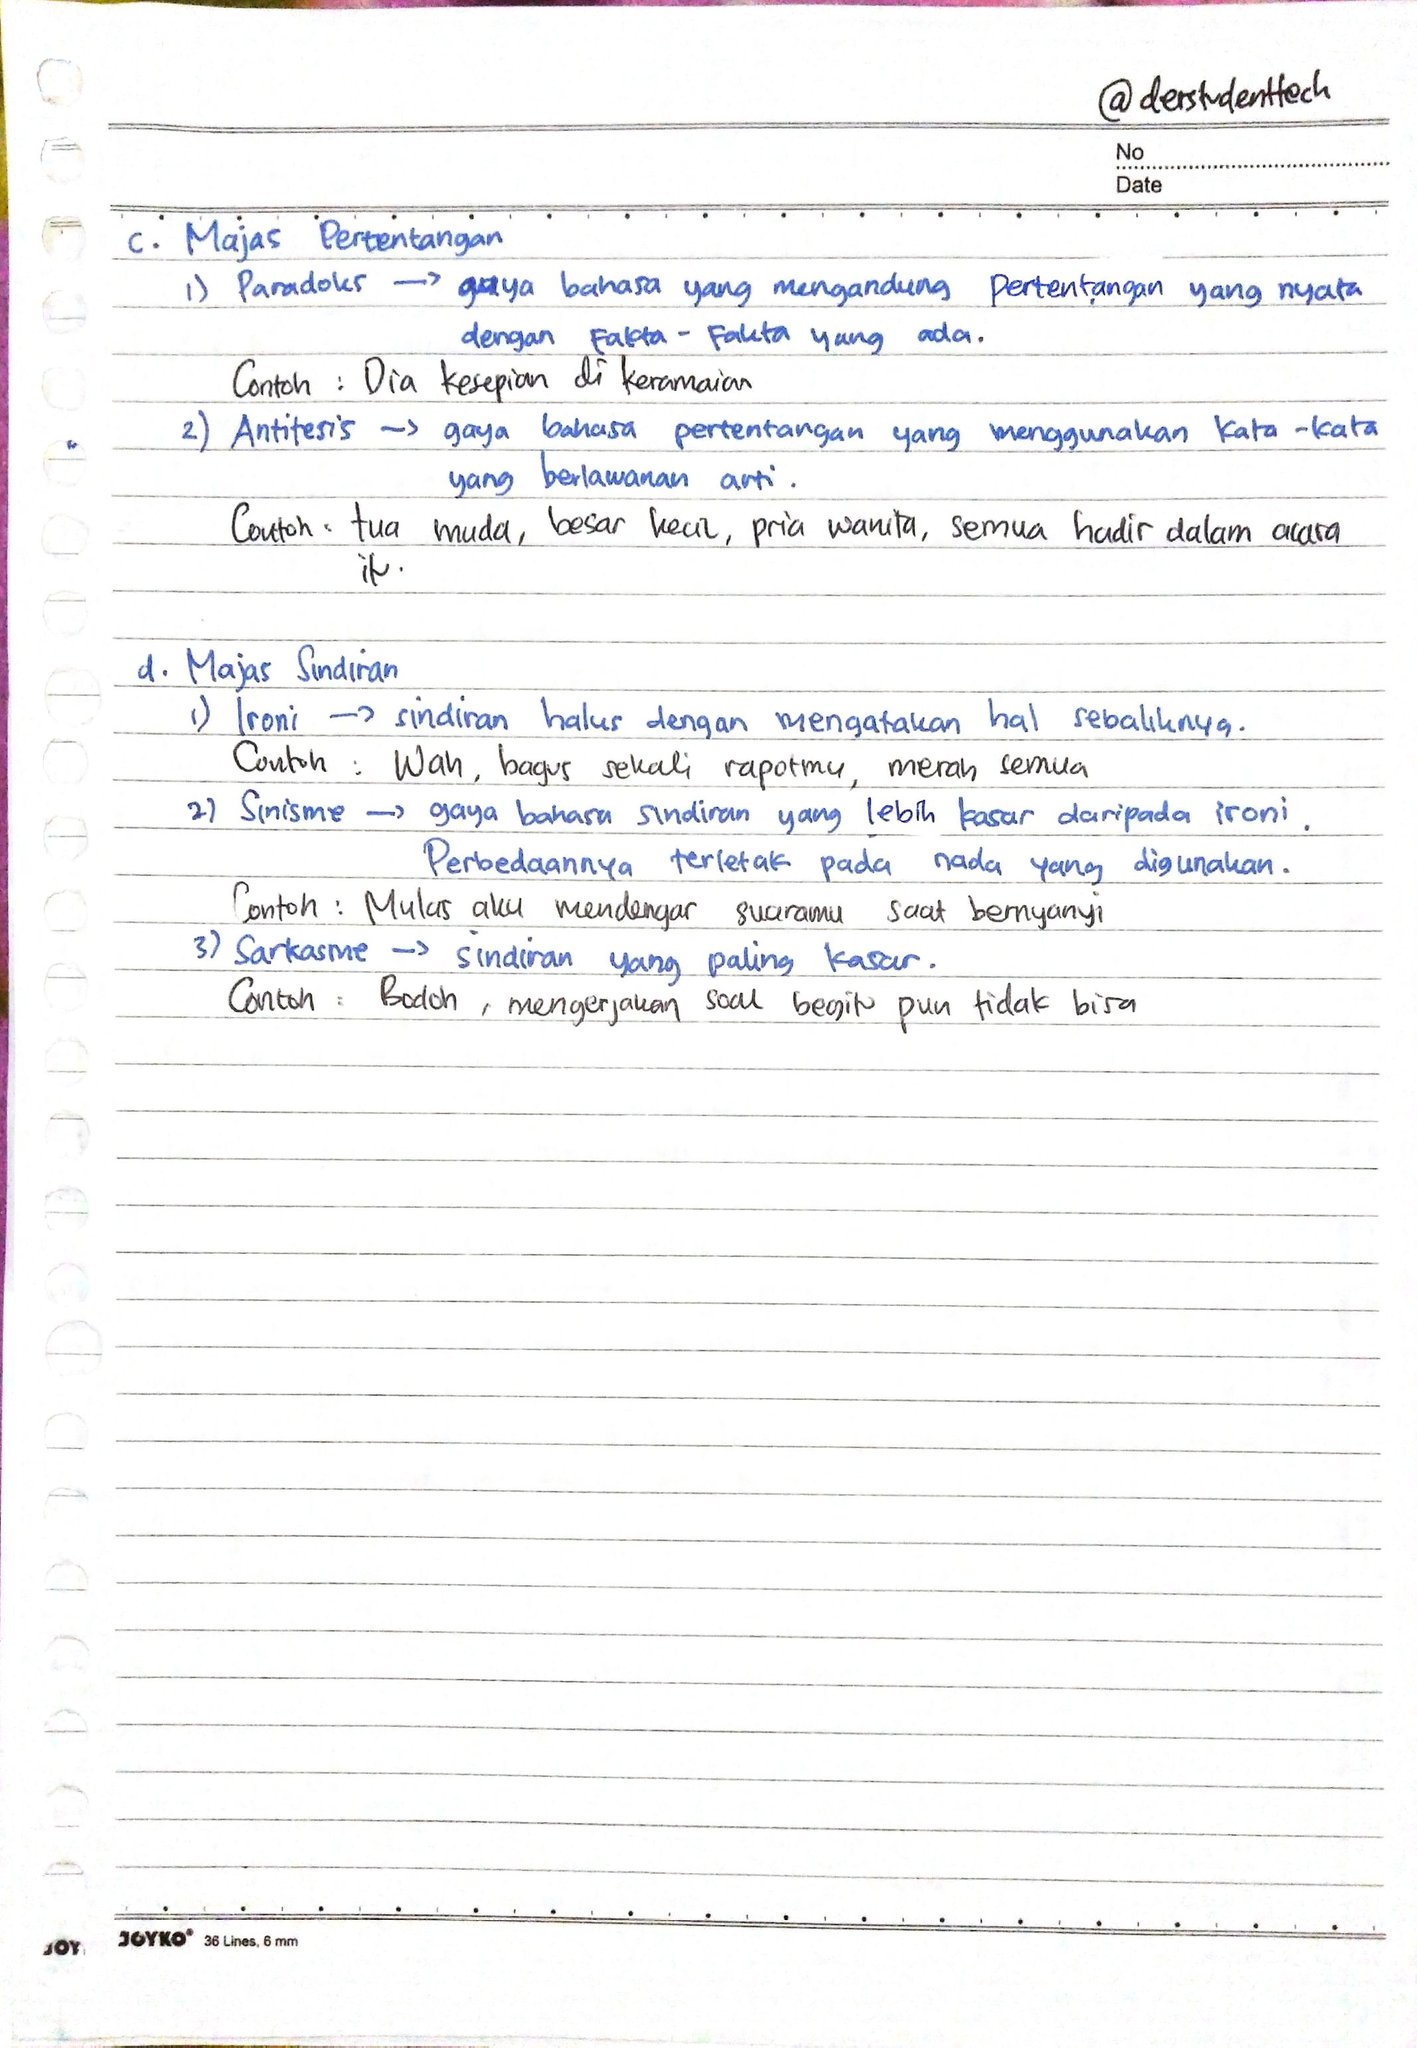 @derstudenttech
No
Date
c. Majas Pertentangan
1) Paradoks → gaya bahasa yang mengandung pertentangan yang nyata
dengan fakta-fakta yang ada.
Contoh : Dia kesepian di keramaian
2) Antitesis → gaya bahasa pertentangan yang menggunakan kata-kata
yang berlawanan arti.
Contoh : tua muda, besar kecil, pria wanita, semua hadir dalam acara
itu.
d. Majas Sindiran
1) Ironi → sindiran halus dengan mengatakan hal sebaliknya.
Contoh : Wah, bagus sekali rapotmu, merah semua
2) Sinisme → gaya bahasa sindiran yang lebih kasar daripada ironi.
Perbedaannya terletak pada nada yang digunakan.
Contoh : Mulas aku mendengar suaramu saat bernyanyi
3) Sarkasme → sindiran yang paling kasar.
Contoh : Bodoh, mengerjakan soal begitu pun tidak bisa
JOY
JOYKO® 36 Lines, 6 mm